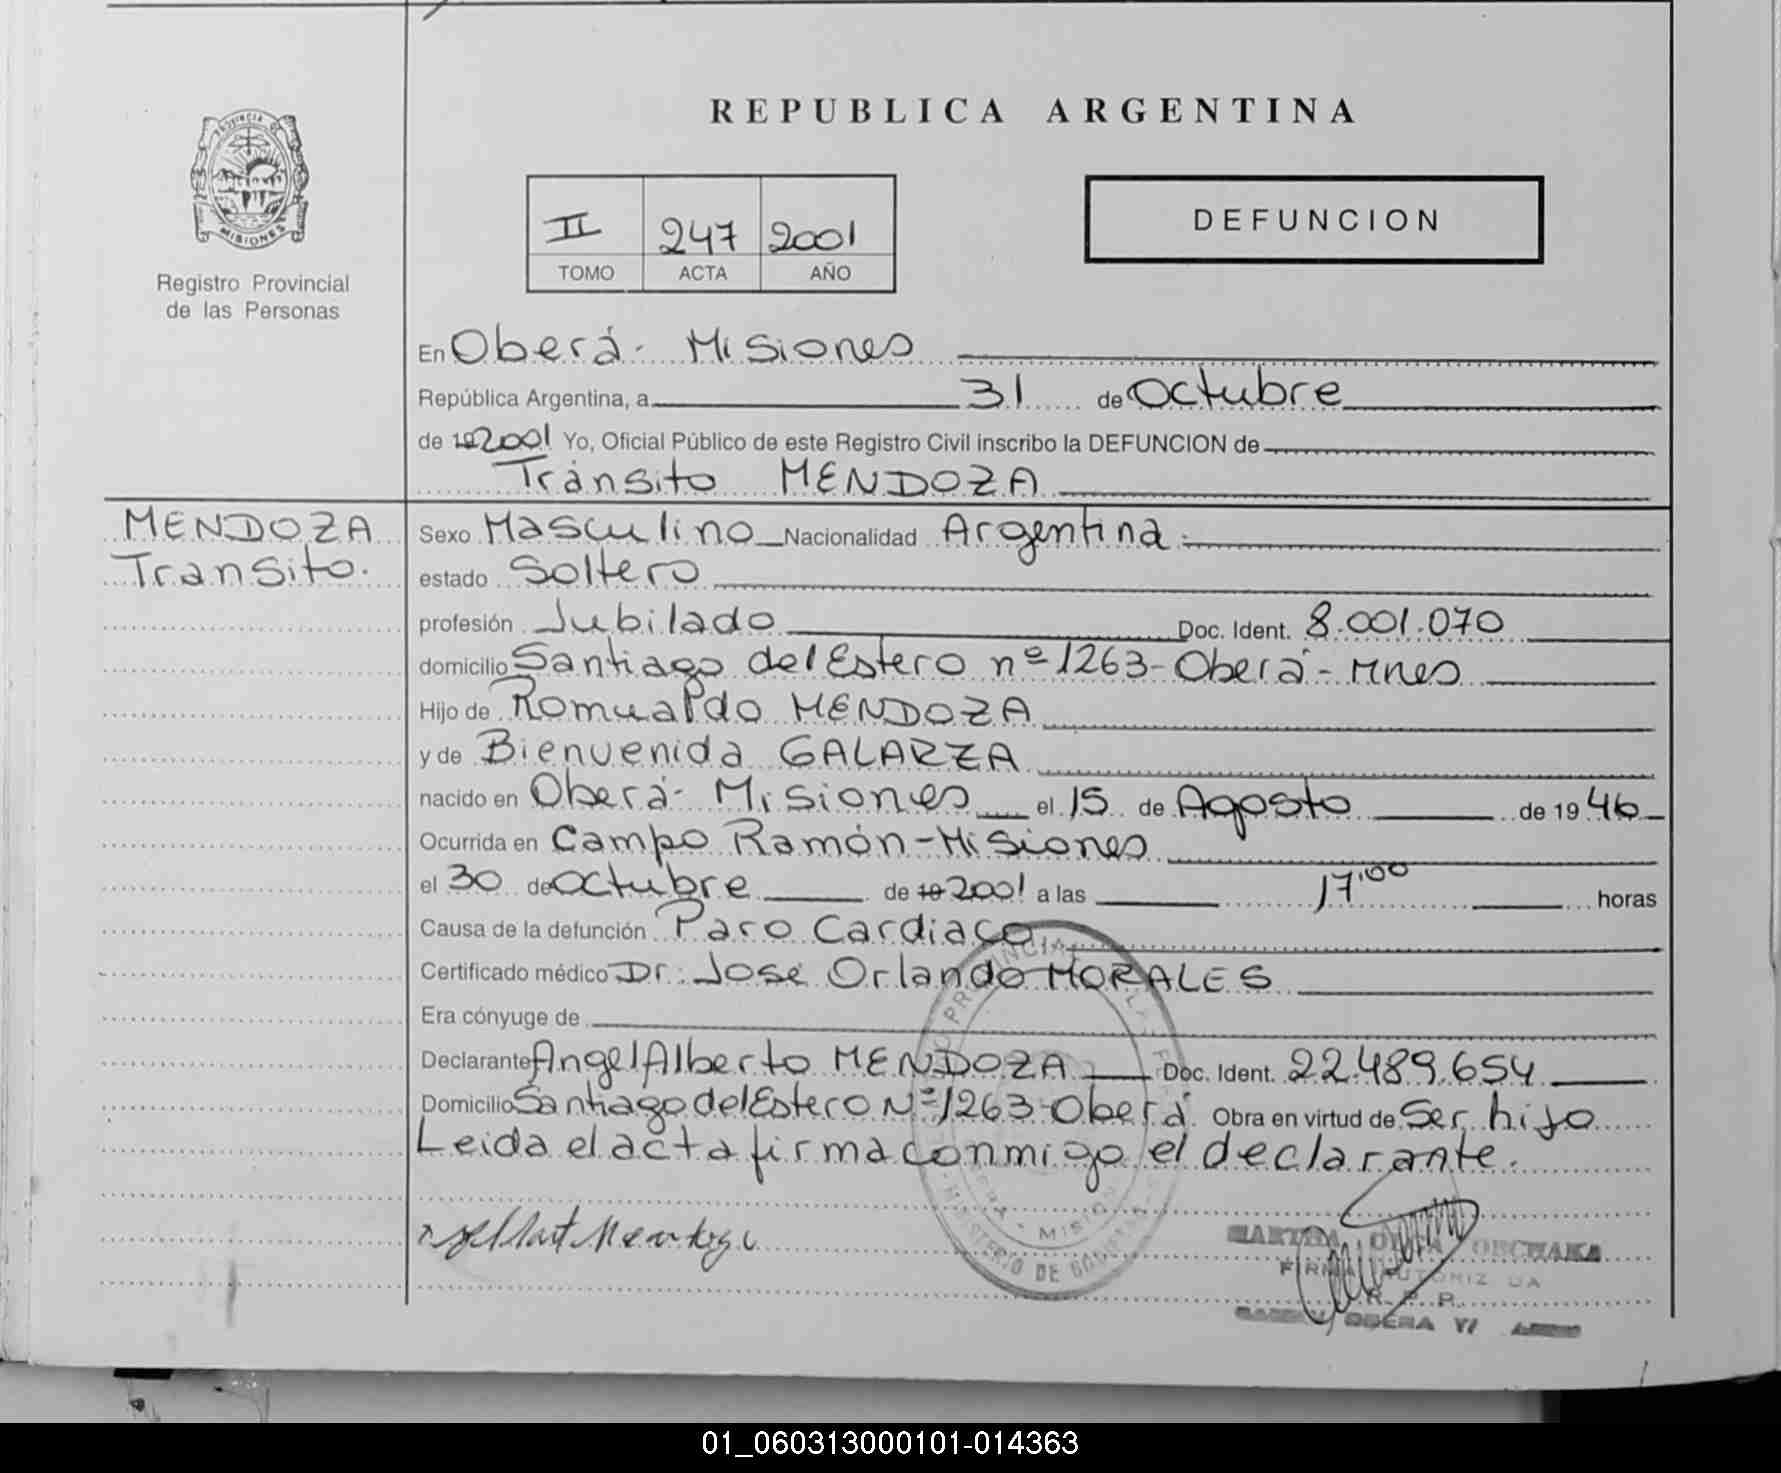 REPUBLICA ARGENTINA
PROVINCIA DE
MISIONES
Registro Provincial
de las Personas
II 247 2001
TOMO ACTA AÑO
DEFUNCION
En Oberá - Misiones
República Argentina, a 31 de Octubre
de 19 2001 Yo, Oficial Público de este Registro Civil inscribo la DEFUNCION de
Tránsito MENDOZA
MENDOZA
Transito.
Sexo Masculino Nacionalidad Argentina.
estado Soltero
profesión Jubilado Doc. Ident. 8.001.070
domicilio Santiago del Estero nº 1263 - Oberá - Mnes
Hijo de Romualdo MENDOZA
y de Bienvenida GALARZA
nacido en Oberá - Misiones el 15 de Agosto de 19 46
Ocurrida en Campo Ramón - Misiones
el 30 de Octubre de 19 2001 a las 17'00 horas
Causa de la defunción Paro Cardiaco
Certificado médico Dr. José Orlando MORALES
Era cónyuge de
Declarante Angel Alberto MENDOZA Doc. Ident. 22.489.654
Domicilio Santiago del Estero Nº 1263 Oberá Obra en virtud de Ser hijo
Leida el acta firma conmigo el declarante.
MARTHA OLGA
FIRMA
R. P. P.
OBERA
01_060313000101-014363